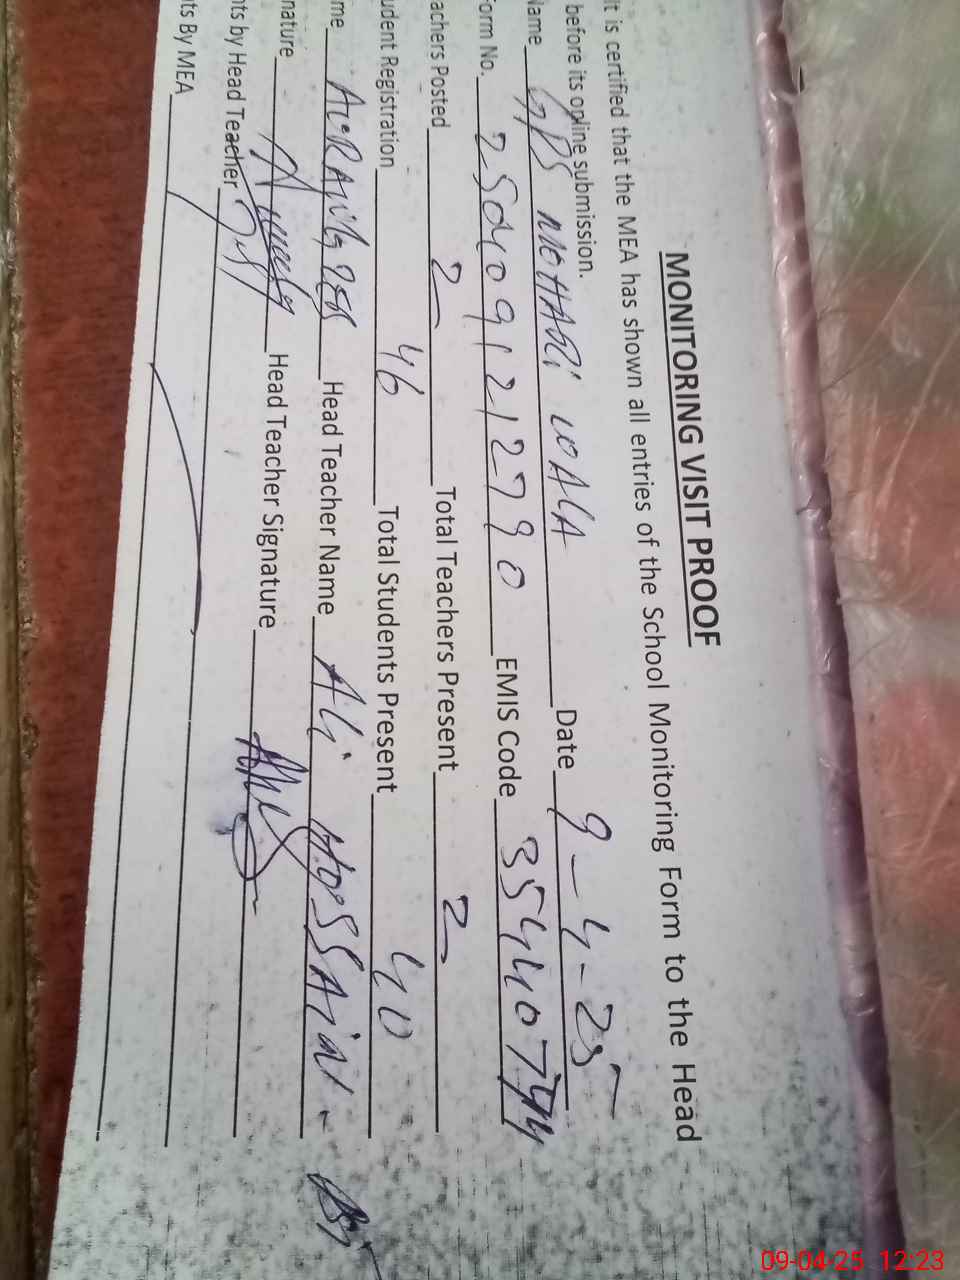 MONITORING VISIT PROOF
It is certified that the MEA has shown all entries of the School Monitoring Form to the Head
before its online submission.
Name GPS MOHARI WALA Date 9-4-25
Form No. 25040912127790 EMIS Code
achers Posted 2 Total Teachers Present 2
udent Registration 46 Total Students Present 40
me Head Teacher Name Ali HoSSAin
nature Head Teacher Signature
nts by Head Teacher
nts By MEA
09-04-25 12:23